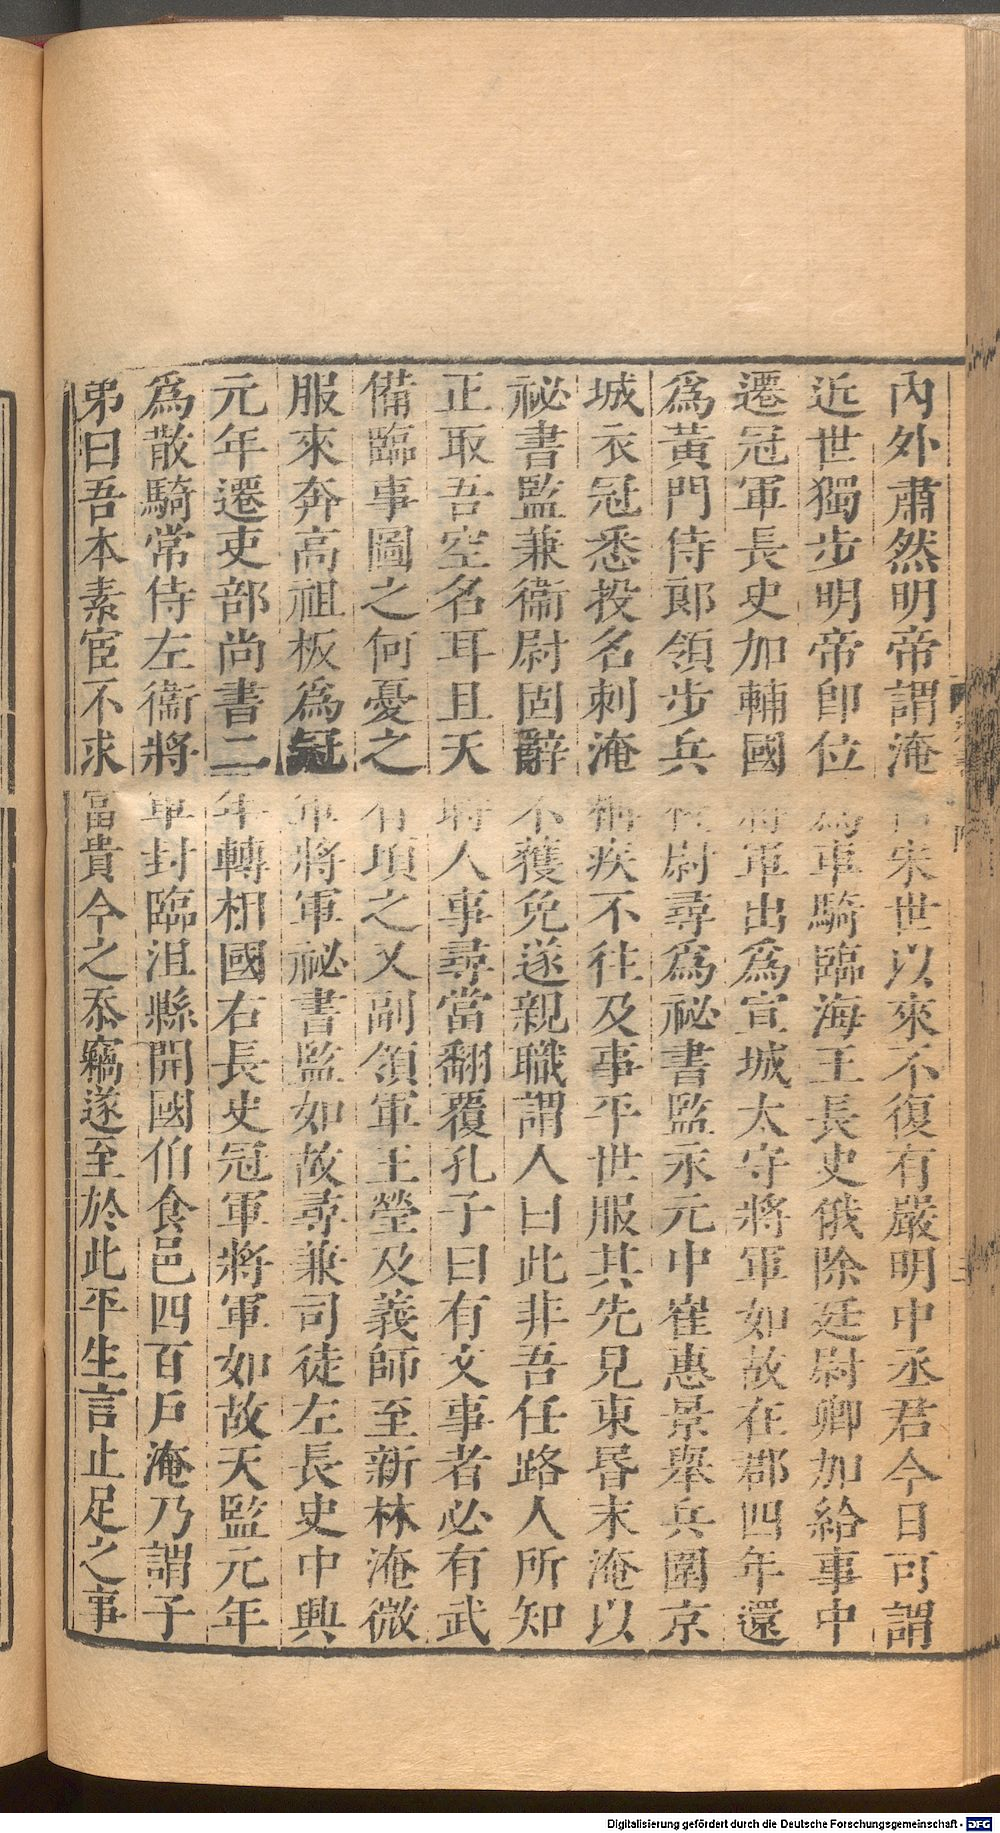 內外肅然明帝謂淹曰宋世以來不復有嚴明中丞君今日可謂
近世獨步明帝即位爲車騎臨海王長史俄除廷尉卿加給事中
遷冠軍長史加輔國將軍出爲宣城太守將軍如故在郡四年還
爲黃門侍郎領步兵校尉尋爲祕書監永元中崔惠景舉兵圍京
城衣冠悉投名刺淹稱疾不往及事平世服其先見東昏末淹以
祕書監兼衞尉固辭不獲免遂親職謂人曰此非吾任路人所知
正取吾空名耳且天時人事尋當翻覆孔子曰有文事者必有武
備臨事圖之何憂之有頃之又副領軍王瑩及義師至新林淹微
服來奔高祖板爲冠軍將軍祕書監如故尋兼司徒左長史中興
元年遷吏部尚書二年轉相國右長史冠軍將軍如故天監元年
爲散騎常侍左衞將軍封臨沮縣開國伯食邑四百戶淹乃謂子
弟曰吾本素宦不求富貴今之忝竊遂至於此平生言止足之事
Digitalisierung gefördert durch die Deutsche Forschungsgemeinschaft - DFG